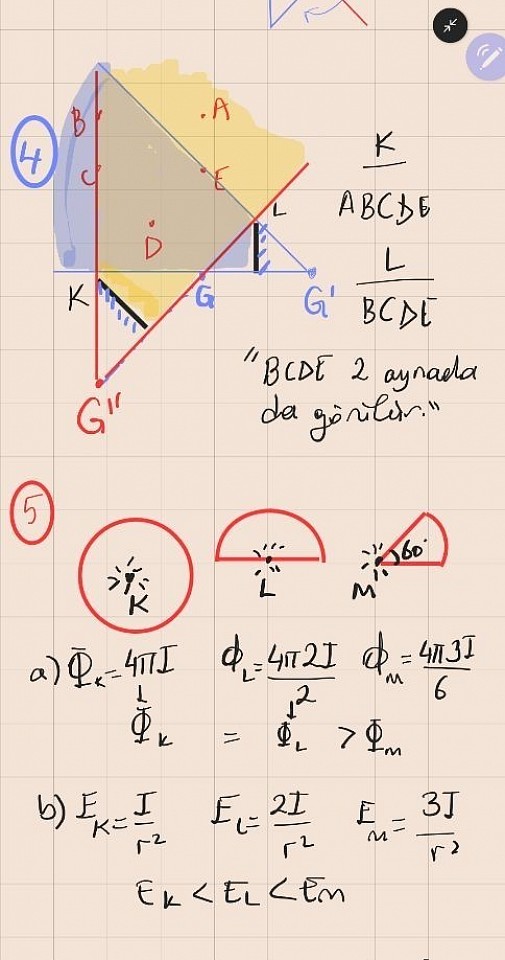 4
B
A
C
E
D
L
K
G
G'
G"
K
ABCDE
L
BCDE
"BCDE 2 aynada
da görülür."
5
K
L
M
60°
a) Φ_K = 4πI Φ_L = 4π2I/2 Φ_M = 4π3I/6
Φ_K = Φ_L > Φ_M
b) E_K = I/r² E_L = 2I/r² E_M = 3I/r²
E_K < E_L < E_M